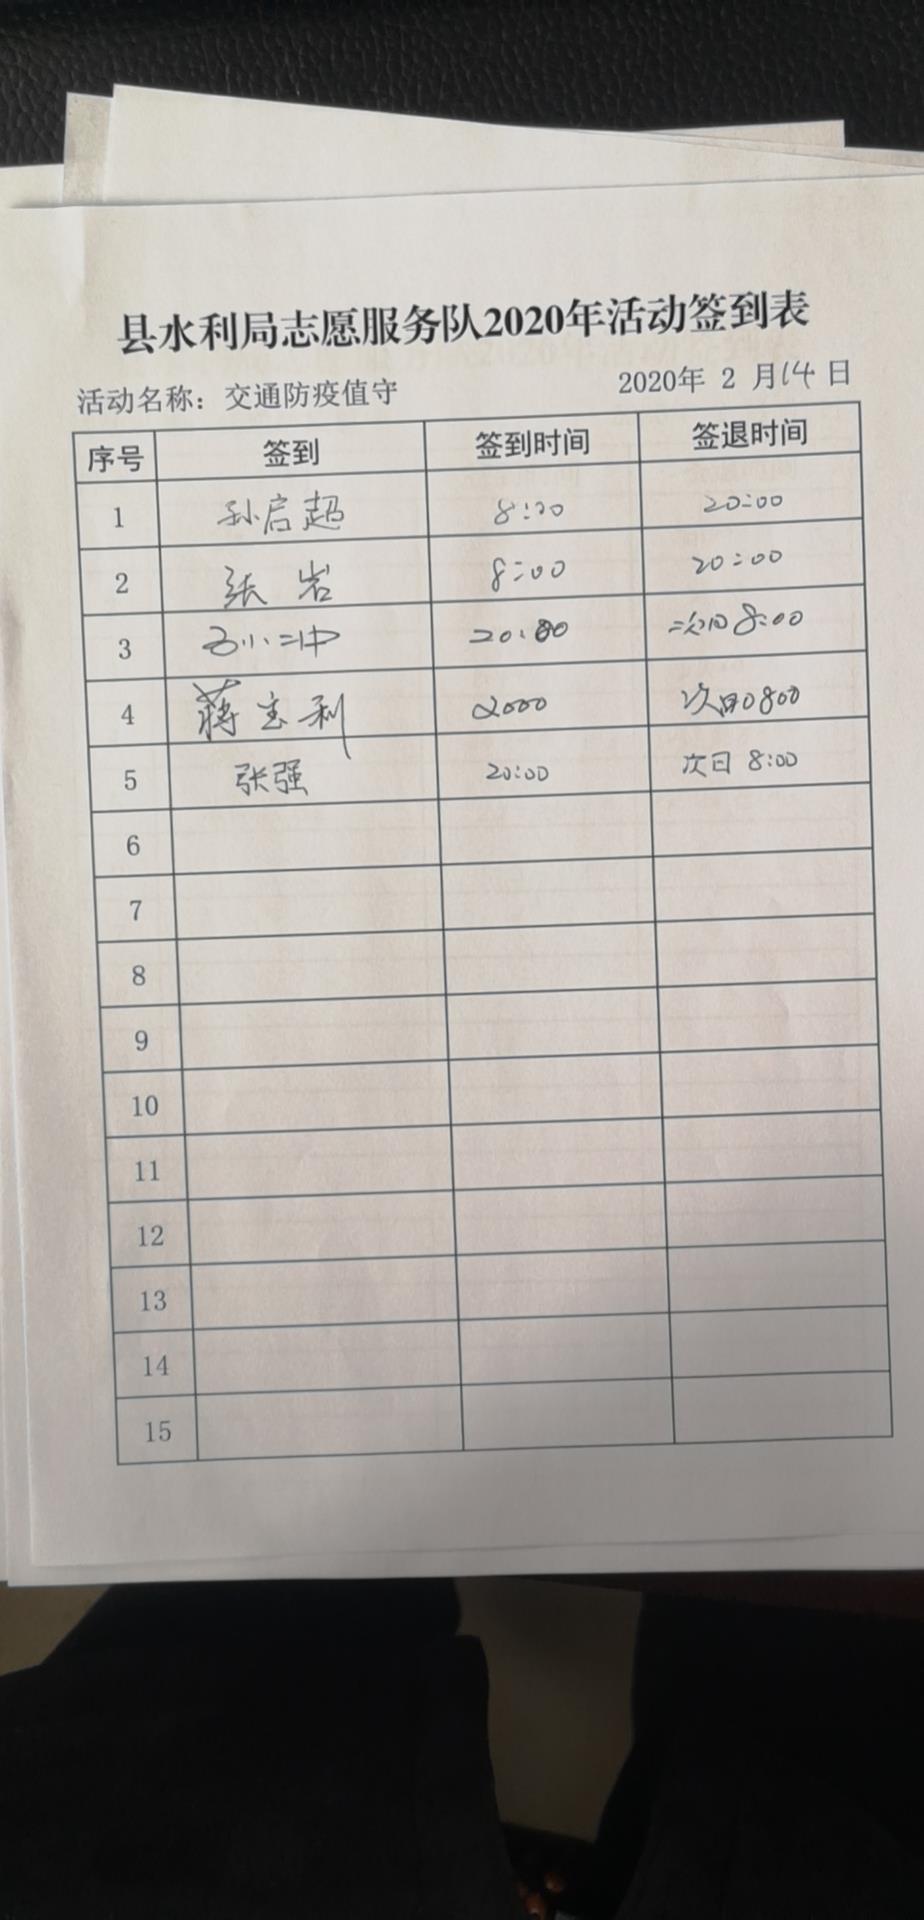 县水利局志愿服务队2020年活动签到表
活动名称：交通防疫值守 2020年 2 月14 日
序号 签到 签到时间 签退时间
1 孙启超 8:00 20:00
2 张岩 8:00 20:00
3 20:00 次日8:00
4 蒋宝利 2000 次日0800
5 张强 20:00 次日 8:00
6
7
8
9
10
11
12
13
14
15